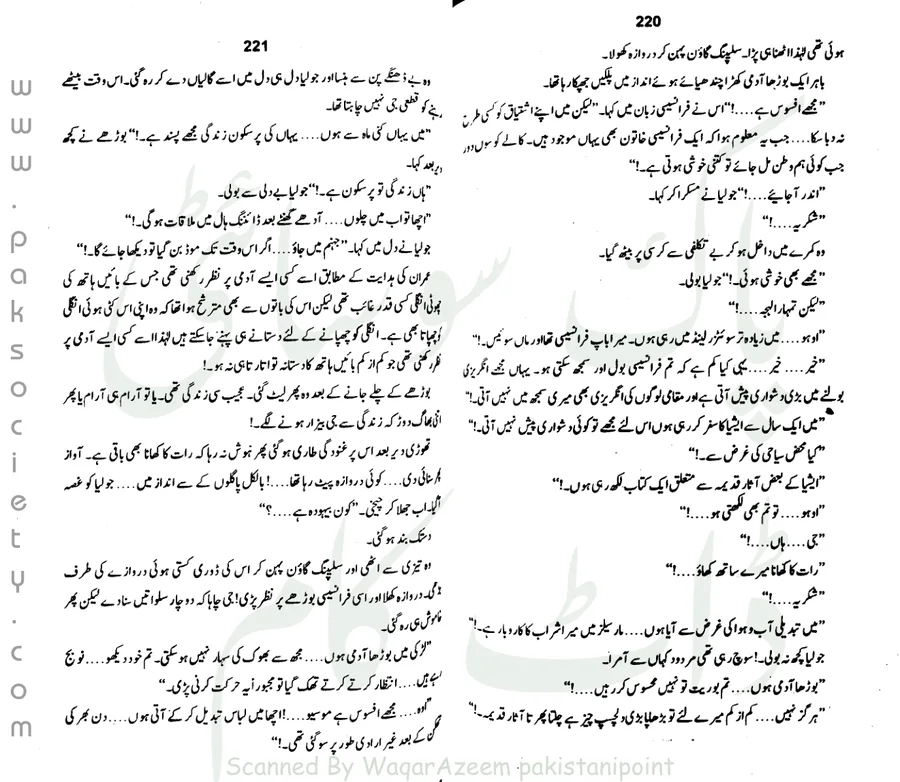 220
ہوئی تھی لہٰذا اٹھنا ہی پڑا۔ سلیپنگ گاؤن پہن کر دروازہ کھولا۔
باہر ایک بوڑھا آدمی کھڑا چندھیائے ہوئے انداز میں پلکیں جھپکا رہا تھا۔
"مجھے افسوس ہے....!" اس نے فرانسیسی زبان میں کہا۔ "لیکن میں اپنے اشتیاق کو کسی طرح
نہ دبا سکا.... جب یہ معلوم ہوا کہ ایک فرانسیسی خاتون بھی یہاں موجود ہیں۔ کالے کوسوں دور
جب کوئی ہم وطن مل جائے تو کتنی خوشی ہوتی ہے۔!"
"اندر آجایئے....!" جولیا نے مسکرا کر کہا۔
"شکریہ....!"
وہ کمرے میں داخل ہو کر بے تکلفی سے کرسی پر بیٹھ گیا۔
"مجھے بھی خوشی ہوئی۔!" جولیا بولی۔
"لیکن تمہارا لہجہ....!"
"اوہو.... میں زیادہ تر سوئٹزر لینڈ میں رہی ہوں۔ میرا باپ فرانسیسی تھا اور ماں سوئیس۔!"
"خیر.... خیر.... یہی کیا کم ہے کہ تم فرانسیسی بول اور سمجھ سکتی ہو۔ یہاں مجھے انگریزی
بولنے میں بڑی دشواری پیش آتی ہے اور مقامی لوگوں کی انگریزی بھی میری سمجھ میں نہیں آتی۔!"
"میں ایک سال سے ایشیا کا سفر کر رہی ہوں اس لئے مجھے تو کوئی دشواری پیش نہیں آتی۔!"
"کیا محض سیاحی کی غرض سے۔!"
"ایشیا کے بعض آثار قدیمہ سے متعلق ایک کتاب لکھ رہی ہوں۔!"
"اوہو.... تو تم بھی لکھتی ہو....!"
"جی.... ہاں....!"
"رات کا کھانا میرے ساتھ کھاؤ....!"
"شکریہ....!"
"میں تبدیلی آب و ہوا کی غرض سے آیا ہوں.... مارسیلز میں میرا شراب کا کاروبار ہے۔!"
جولیا کچھ نہ بولی۔! سوچ رہی تھی مردود کہاں سے آمرا۔
"بوڑھا آدمی ہوں.... تم بوریت تو نہیں محسوس کر رہیں....!"
"ہرگز نہیں.... کم از کم میرے لئے تو بڑھاپا بڑی دلچسپ چیز ہے چلتا پھرتا آثار قدیمہ۔!"
221
وہ بے ڈھنگے پن سے ہنسا اور جولیا دل ہی دل میں اسے گالیاں دے کر رہ گئی۔ اس وقت بیٹھے
رہنے کو قطعی جی نہیں چاہتا تھا۔
"میں یہاں کئی ماہ سے ہوں.... یہاں کی پرسکون زندگی مجھے پسند ہے۔!" بوڑھے نے کچھ
دیر بعد کہا۔
"ہاں زندگی تو پرسکون ہے۔!" جولیا بے دلی سے بولی۔
"اچھا تو اب میں چلوں.... آدھے گھنٹے بعد ڈائننگ ہال میں ملاقات ہوگی۔!"
جولیا نے دل میں کہا۔ "جہنم میں جاؤ.... اگر اس وقت تک موڈ بن گیا تو دیکھا جائے گا۔!"
عمران کی ہدایت کے مطابق اسے کسی ایسے آدمی پر نظر رکھنی تھی جس کے بائیں ہاتھ کی
چھوٹی انگلی کسی قدر غائب تھی لیکن اس کی باتوں سے یہ بھی مترشح ہوا تھا کہ وہ اپنی اس کٹی ہوئی انگلی
کو چھپاتا بھی ہے۔ انگلی کو چھپانے کے لئے دستانے ہی پہنے جاسکتے ہیں لہٰذا اسے کسی ایسے آدمی پر
نظر رکھنی تھی جو کم از کم بائیں ہاتھ کا دستانہ تو اتارتا ہی نہ ہو۔!
بوڑھے کے چلے جانے کے بعد وہ پھر لیٹ گئی۔ عجیب سی زندگی تھی۔ یا تو آرام ہی آرام یا پھر
اتنی بھاگ دوڑ کہ زندگی سے جی بیزار ہونے لگے۔!
تھوڑی دیر بعد اس پر غنودگی طاری ہوگئی پھر ہوش نہ رہا کہ رات کا کھانا بھی باقی ہے۔ آواز
پھر سنائی دی.... کوئی دروازہ پیٹ رہا تھا....! بالکل پاگلوں کے سے انداز میں.... جولیا کو غصہ
آگیا۔ اب جھلا کر چیخی۔ "کون بیہودہ ہے....؟"
دستک بند ہوگئی۔
وہ تیزی سے اٹھی اور سلیپنگ گاؤن پہن کر اس کی ڈوری کستی ہوئی دروازے کی طرف
جھپٹی۔ دروازہ کھلا اور اسی فرانسیسی بوڑھے پر نظر پڑی! جی چاہا کہ دوچار سلواتیں سنادے لیکن پھر
خاموش ہی رہ گئی۔
"لڑکی میں بوڑھا آدمی ہوں.... مجھ سے بھوک کی سہار نہیں ہوسکتی۔ تم خود دیکھو.... نو بج
رہے ہیں.... انتظار کرتے کرتے تھک گیا تو مجبوراً یہ حرکت کرنی پڑی۔"
"اوہ.... مجھے افسوس ہے موسیو....! اچھا میں لباس تبدیل کر کے آتی ہوں.... دن بھر کی
تھکن کے بعد غیر ارادی طور پر سو گئی تھی۔!"
www.paksociety.com
پاک سوسائٹی ڈاٹ کام
Scanned By WaqarAzeem pakistanipoint